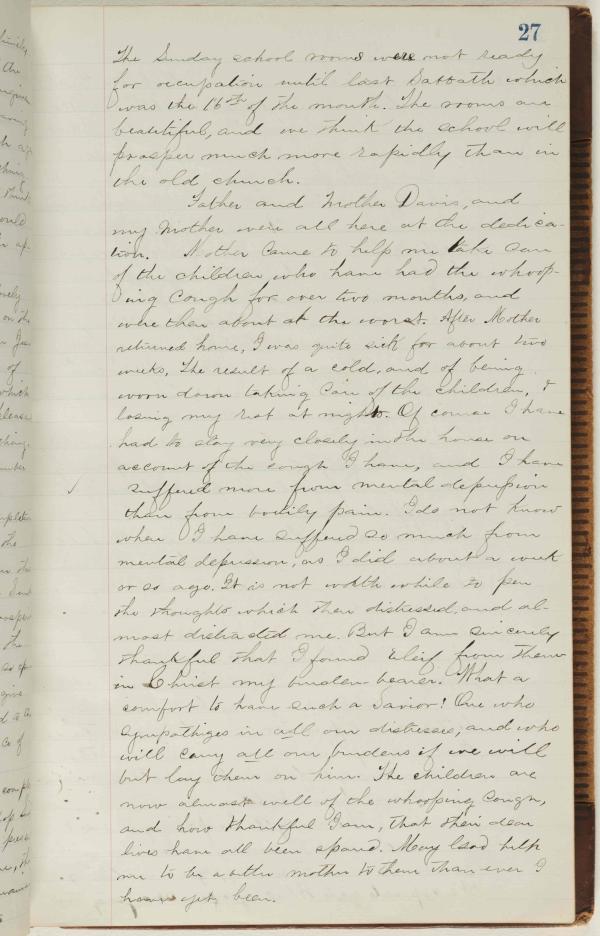 27
The Sunday school rooms were not ready
for occupation until last Sabbath which
was the 16th of the month. The rooms are
beautiful, and we think the school will
prosper much more rapidly than in
the old church.
Father and Mother Davis, and
my Mother were all here at the dedica-
tion. Mother came to help me take care
of the children who have had the whoop-
ing cough for over two months, and
were then about at the worst. After Mother
returned home, I was quite sick for about two
weeks, the result of a cold, and of being
worn down taking care of the children, &
losing my rest at nights. Of course I have
had to stay very closely in the house on
account of the cough I have, and I have
suffered more from mental depression
than from bodily pain. I do not know
when I have suffered so much from
mental depression, as I did about a week
or so ago. It is not worth while to pen
the thoughts which then distressed and al-
most distracted me. But I am sincerely
thankful that I found relief from them
in Christ my burden-bearer. What a
comfort to have such a Savior! One who
sympathizes in all our distresses, and who
will carry all our burdens if we will
but lay them on him. The children are
now almost well of the whooping cough,
and how thankful I am, that their dear
lives have all been spared. May God help
me to be a better mother to them than ever I
have yet been.